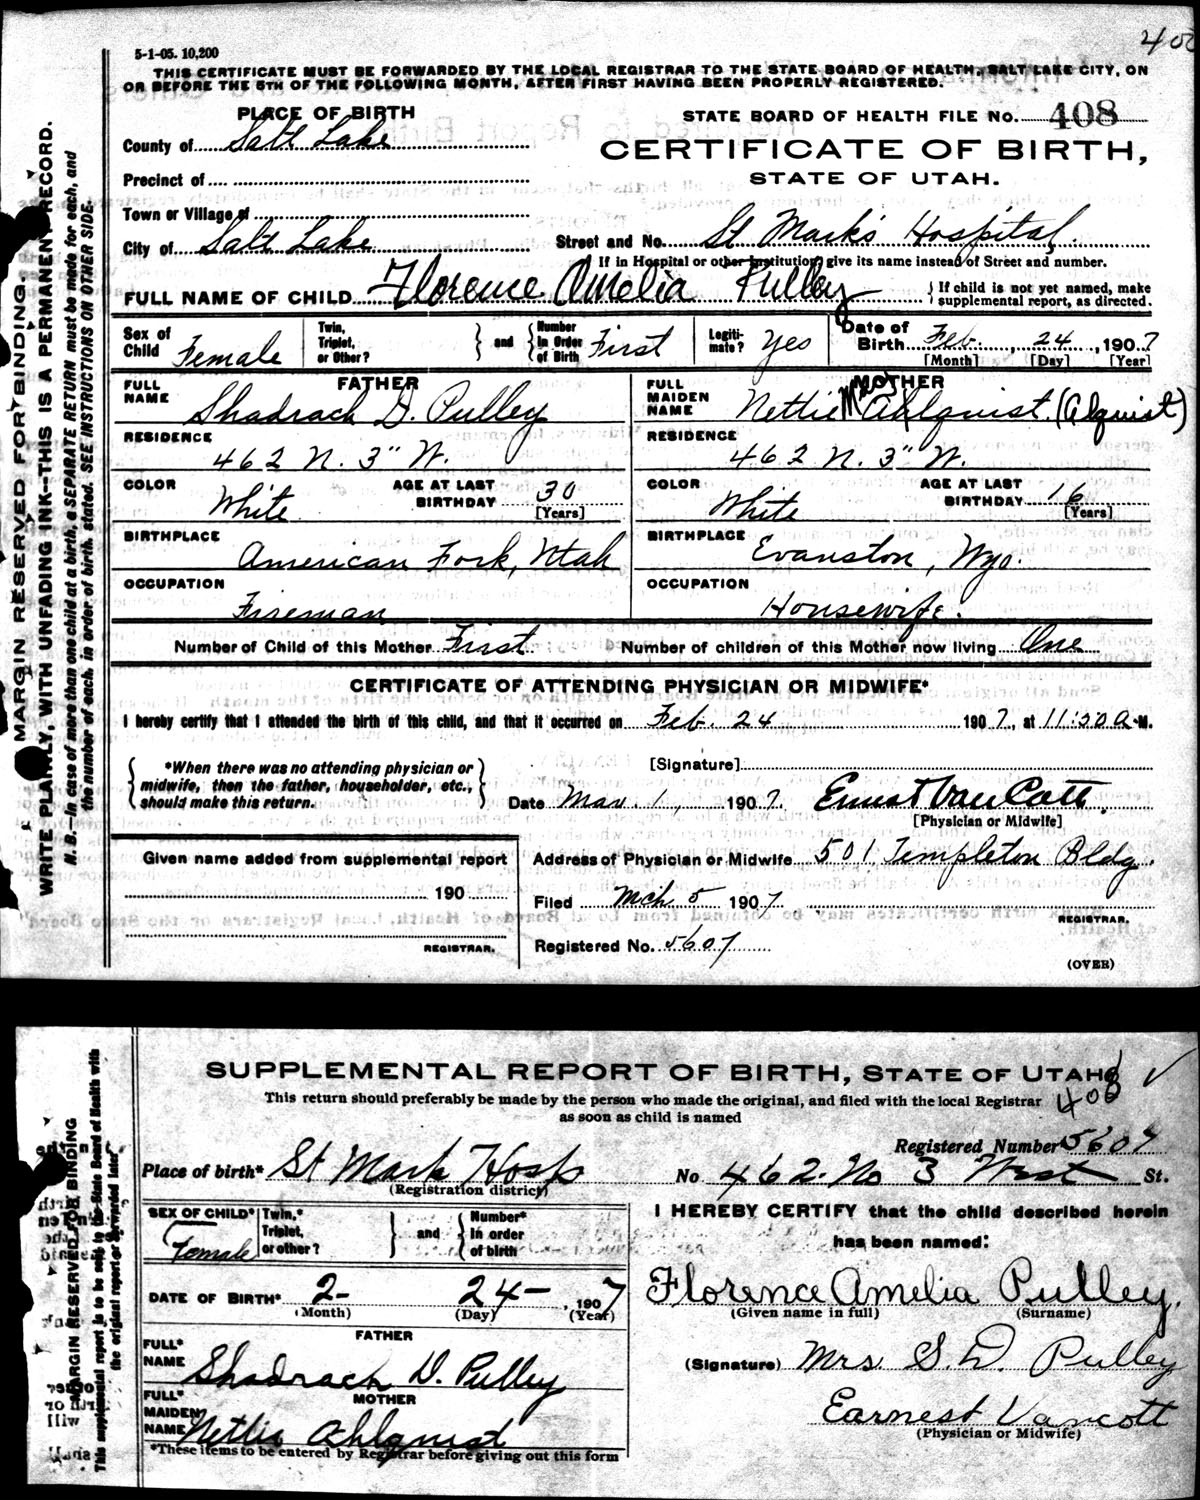 400
5-1-05. 10,200
THIS CERTIFICATE MUST BE FORWARDED BY THE LOCAL REGISTRAR TO THE STATE BOARD OF HEALTH, SALT LAKE CITY, ON
OR BEFORE THE 5TH OF THE FOLLOWING MONTH, AFTER FIRST HAVING BEEN PROPERLY REGISTERED.
PLACE OF BIRTH
STATE BOARD OF HEALTH FILE No. 408
County of Salt Lake
CERTIFICATE OF BIRTH,
Precinct of
STATE OF UTAH.
Town or Village of
City of Salt Lake Street and No. St Mark's Hospital.
If in Hospital or other Institution, give its name instead of Street and number.
FULL NAME OF CHILD Florence Amelia Pulley { If child is not yet named, make supplemental report, as directed.
Sex of Child Female Twin, Triplet, or Other? } and { Number in Order of Birth First Legitimate? Yes Date of Birth Feb. 24, 1907
[Month] [Day] [Year]
FATHER MOTHER
FULL NAME Shadrach D. Pulley FULL MAIDEN NAME Nettie Mrs Ahlquist (Alquist)
RESIDENCE 462 N. 3" W. RESIDENCE 462 N. 3" W.
COLOR White AGE AT LAST BIRTHDAY 30 [Years] COLOR White AGE AT LAST BIRTHDAY 16 [Years]
BIRTHPLACE American Fork, Utah BIRTHPLACE Evanston, Wyo.
OCCUPATION Fireman OCCUPATION Housewife.
Number of Child of this Mother First Number of children of this Mother now living One
CERTIFICATE OF ATTENDING PHYSICIAN OR MIDWIFE*
I hereby certify that I attended the birth of this child, and that it occurred on Feb. 24 1907, at 11:50 A.M.
{ *When there was no attending physician or midwife, then the father, householder, etc., should make this return. }
[Signature]
Date Mar. 1, 1907. Ernest Van Cott.
[Physician or Midwife]
Given name added from supplemental report
Address of Physician or Midwife 501 Templeton Bldg.
190
Filed Mch. 5 1907
REGISTRAR.
REGISTRAR.
Registered No. 5607
(OVER)
MARGIN RESERVED FOR BINDING.
WRITE PLAINLY, WITH UNFADING INK—THIS IS A PERMANENT RECORD.
N. B.—In case of more than one child at a birth, a SEPARATE RETURN must be made for each, and
the number of each, in order of birth, stated. SEE INSTRUCTIONS ON OTHER SIDE.
SUPPLEMENTAL REPORT OF BIRTH, STATE OF UTAH
This return should preferably be made by the person who made the original, and filed with the local Registrar
as soon as child is named
408
Registered Number 5607
Place of birth* St Mark Hosp No 462 No 3 West St.
(Registration district)
SEX OF CHILD* Female Twin,* Triplet, or other? } and { Number* In order of birth
I HEREBY CERTIFY that the child described herein
has been named:
DATE OF BIRTH* 2- 24- 1907
(Month) (Day) (Year)
Florence Amelia Pulley.
(Given name in full) (Surname)
FATHER
FULL* NAME Shadrach D. Pulley
(Signature) Mrs. S. D. Pulley
MOTHER
FULL* MAIDEN NAME Nettie Ahlquist
Earnest Vancott
(Physician or Midwife)
*These items to be entered by Registrar before giving out this form
MARGIN RESERVED FOR BINDING
This supplemental report to be sent to the State Board of Health with
the original report or forwarded later